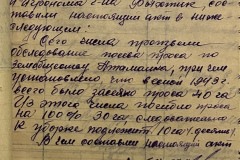 и агронома с-ма Фыктик, сос-
товили настоящий акт в ниже
следующем:
Сего числа произвели
обследование посева проса по
при чем
установлено, что весной 1943 г.
всего было засеяно проса 40 га
Из этого числа погибло проса
на 100% 30 га следовательно
к уборке подлежит 10 га (десять)
В чем составлен настоящий акт